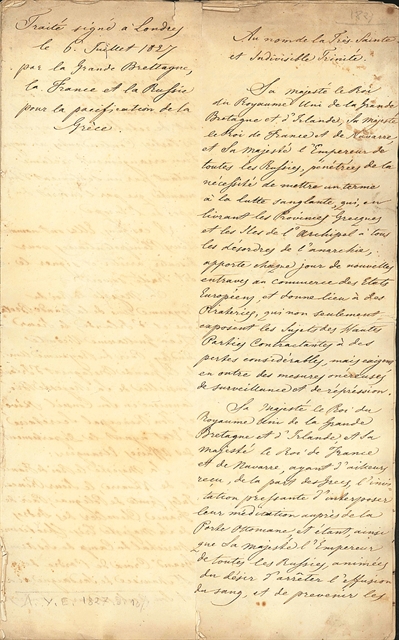 Traité signé à Londres
le 6 Juillet 1827
par la Grande Brettagne,
la France et la Russie
pour la pacification de la
Grèce.
Au nom de la Très Sainte
et Indivisible Trinité.
Sa majesté le Roi
du Royaume Uni de la Grande
Bretagne et d'Irlande, Sa majesté
le Roi de France et de Navarre
et Sa majesté l'Empereur de
toutes les Russies, pénétrées de la
nécessité de mettre un terme
à la lutte sanglante, qui, en
livrant les Provinces Grecques
et les Iles de l'Archipel à tous
les désordres de l'anarchie,
apporte chaque jour de nouvelles
entraves au commerce des Etats
Européens, et donne lieu à des
Pirateries, qui non seulement
exposent les Sujets des Hautes
Parties Contractantes à des
pertes considérables, mais exigent
en outre des mesures onéreuses
de surveillance et de répression.
Sa Majesté le Roi du
Royaume Uni de la Grande
Bretagne et d'Irlande et Sa
majesté le Roi de France
et de Navarre, ayant d'ailleurs
reçu, de la part des Grecs, l'invi
tation pressante d'interposer
leur médiation auprès de la
Porte Ottomane et étant, ainsi
que Sa majesté l'Empereur
de toutes les Russies, animées
du désir d'arrêter l'effusion
du sang, et de prévenir les